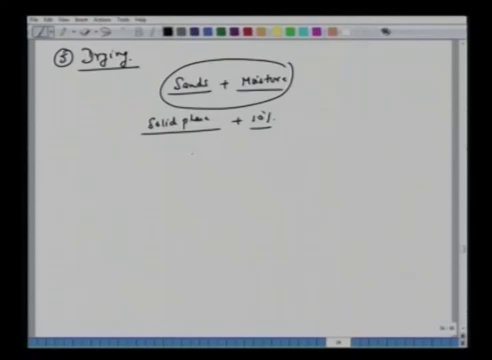 File Edit View Insert Actions Tools Help
⑤ Drying.
Sands + Moisture
Solid phase + 10%.